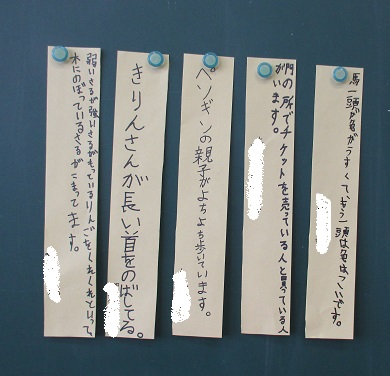 馬一頭が色がうすくて、もう一頭は色はこいです。
門の所でチケットを売っている人と買っている人
がいます。
ペンギンの親子がよちよち歩いています。
きりんさんが長い首をのばしてる。
弱いさるが強いさるがもっているりんごをくれくれといって
木にのぼっているさるがこまってます。